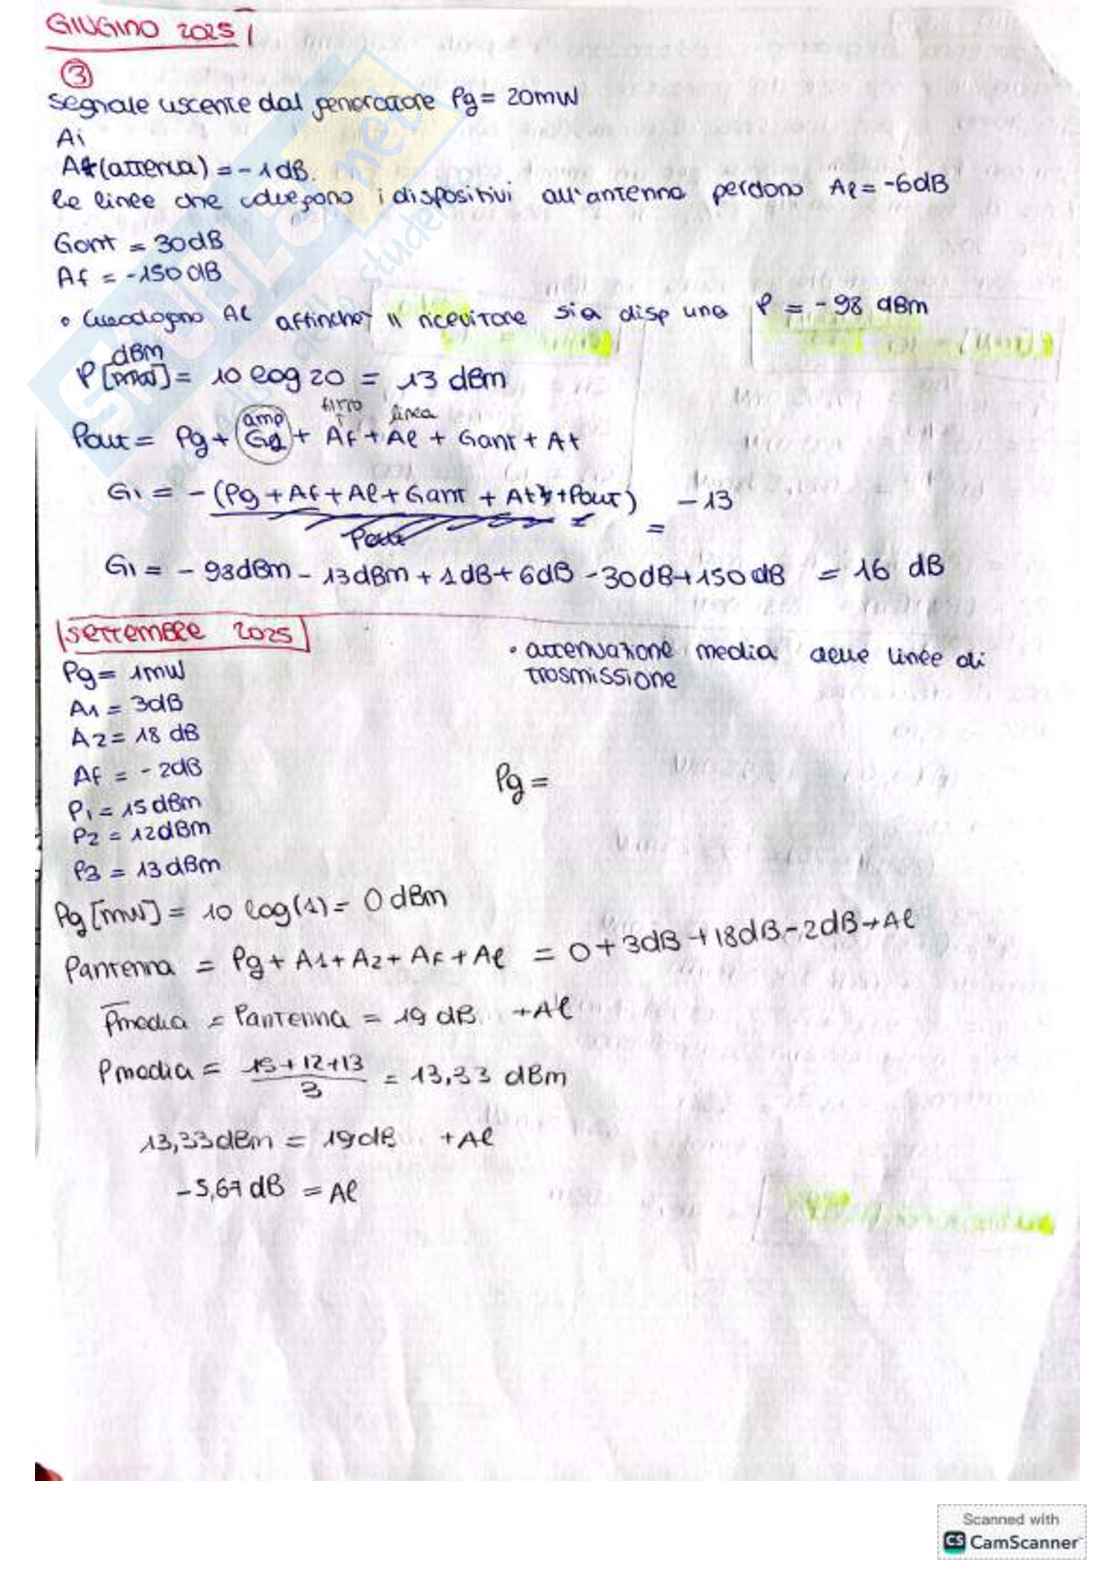 GIUGNO 2025
③
Segnale uscente dal generatore Pg = 20mW
Ai
At (attenua) = - 1dB.
le linee che colvegono i dispositivi all'antenna perdono Al = -6dB
Gant = 30dB
Af = -150 dB
• Guadagno AC affinche il ricevitore sia disp una P = - 98 dBm
dBm
P[mW] = 10 log 20 = 13 dBm
amp filtro linea
Pout = Pg + G1 + Af + Al + Gant + At
G1 = - (Pg + Af + Al + Gant + At + Pout) = - 13
G1 = - 98dBm - 13dBm + 1dB + 6dB - 30dB + 150dB = 16 dB
SETTEMBRE 2025
• attenuazione media delle linee di
trasmissione
Pg = 1mW
A1 = 3dB
A2 = 18 dB
Af = - 2dB
Pg =
P1 = 15 dBm
P2 = 12dBm
P3 = 13 dBm
Pg [mW] = 10 log(1) = 0 dBm
Pantenna = Pg + A1 + A2 + Af + Al = 0 + 3dB + 18dB - 2dB + Al
Pmedia = Pantenna = 19 dB + Al
Pmedia = 15+12+13 / 3 = 13,33 dBm
13,33dBm = 19dB + Al
-5,67 dB = Al
Scanned with
CS CamScanner